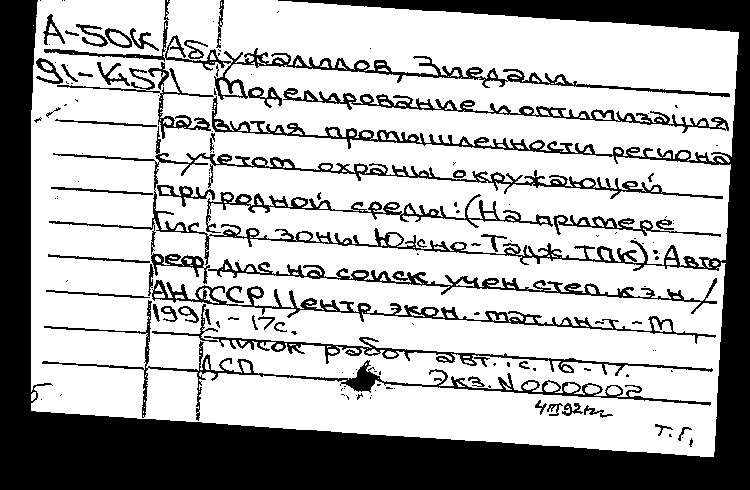 А-50К
91-К4571
Абдужалилов, Зиедали.
Моделирование и оптимизация
развития промышленности региона
с учетом охраны окружающей
природной среды: (На примере
Гиссар. зоны Южно-Тадж. ТПК): Авто-
реф. дис. на соиск. учен. степ. к.э.н. /
АН СССР, Центр. экон.-мат. ин-т. - М.,
1991. - 17с.
Список работ авт.: с. 16-17.
ДСП. Экз. N 000002
4III92
т. Г,